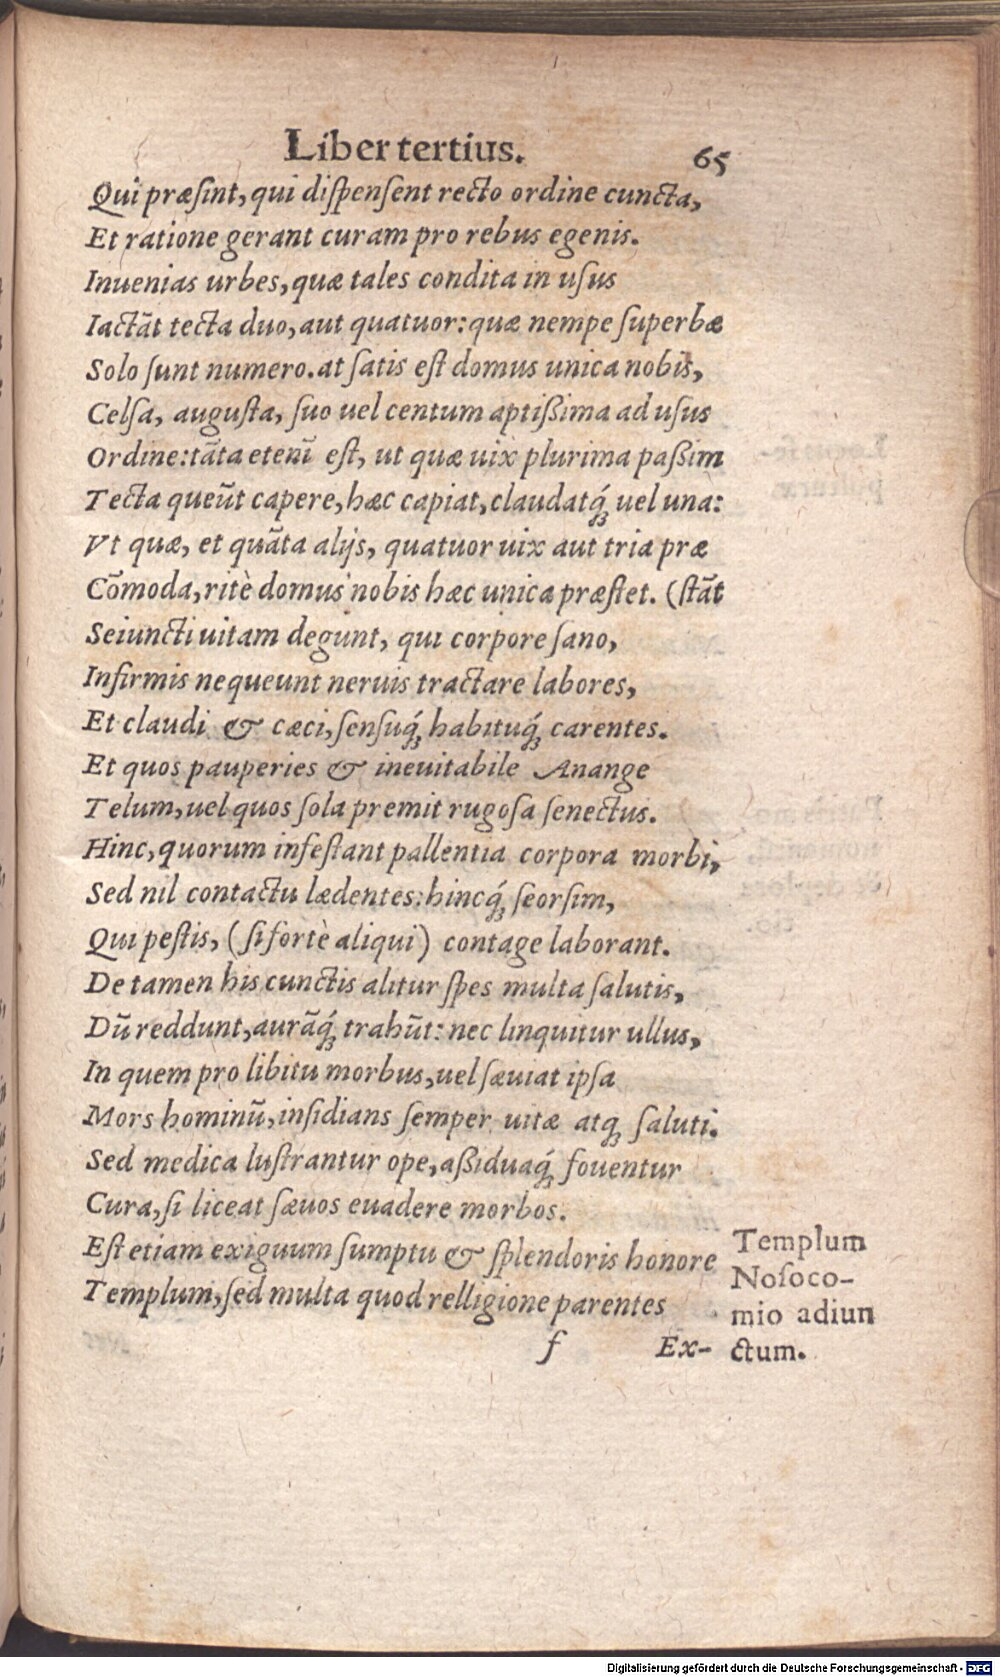 Liber tertius. 65
Qui præsint, qui dispensent recto ordine cuncta,
Et ratione gerant curam pro rebus egenis.
Inuenias urbes, quæ tales condita in usus
Iactāt tecta duo, aut quatuor: quæ nempe superbæ
Solo sunt numero. at satis est domus unica nobis,
Celsa, augusta, suo uel centum aptißima ad usus
Ordine: tāta etenī est, ut quæ uix plurima paßim
Tecta queūt capere, hæc capiat, claudatq́ꝫ uel una:
Vt quæ, et quāta alijs, quatuor uix aut tria præ
Cōmoda, ritè domus nobis hæc unica præstet. (stāt
Seiuncti uitam degunt, qui corpore sano,
Infirmis nequeunt neruis tractare labores,
Et claudi & cæci, sensuq́ꝫ habituq́ꝫ carentes.
Et quos pauperies & ineuitabile Anange
Telum, uel quos sola premit rugosa senectus.
Hinc, quorum infestant pallentia corpora morbi,
Sed nil contactu lædentes: hincq́ꝫ seorsim,
Qui pestis, (si fortè aliqui) contage laborant.
De tamen his cunctis alitur spes multa salutis,
Dū reddunt, aurāq́ꝫ trahūt: nec linquitur ullus,
In quem pro libitu morbus, uel sæuiat ipsa
Mors hominū, insidians semper uitæ atqꝫ saluti.
Sed medica lustrantur ope, aßiduaq́ꝫ fouentur
Cura, si liceat sæuos euadere morbos.
Est etiam exiguum sumptu & splendoris honore
Templum, sed multa quod relligione parentes
Templum
Nosoco-
mio adiun
ctum.
f Ex-
Digitalisierung gefördert durch die Deutsche Forschungsgemeinschaft - DFG